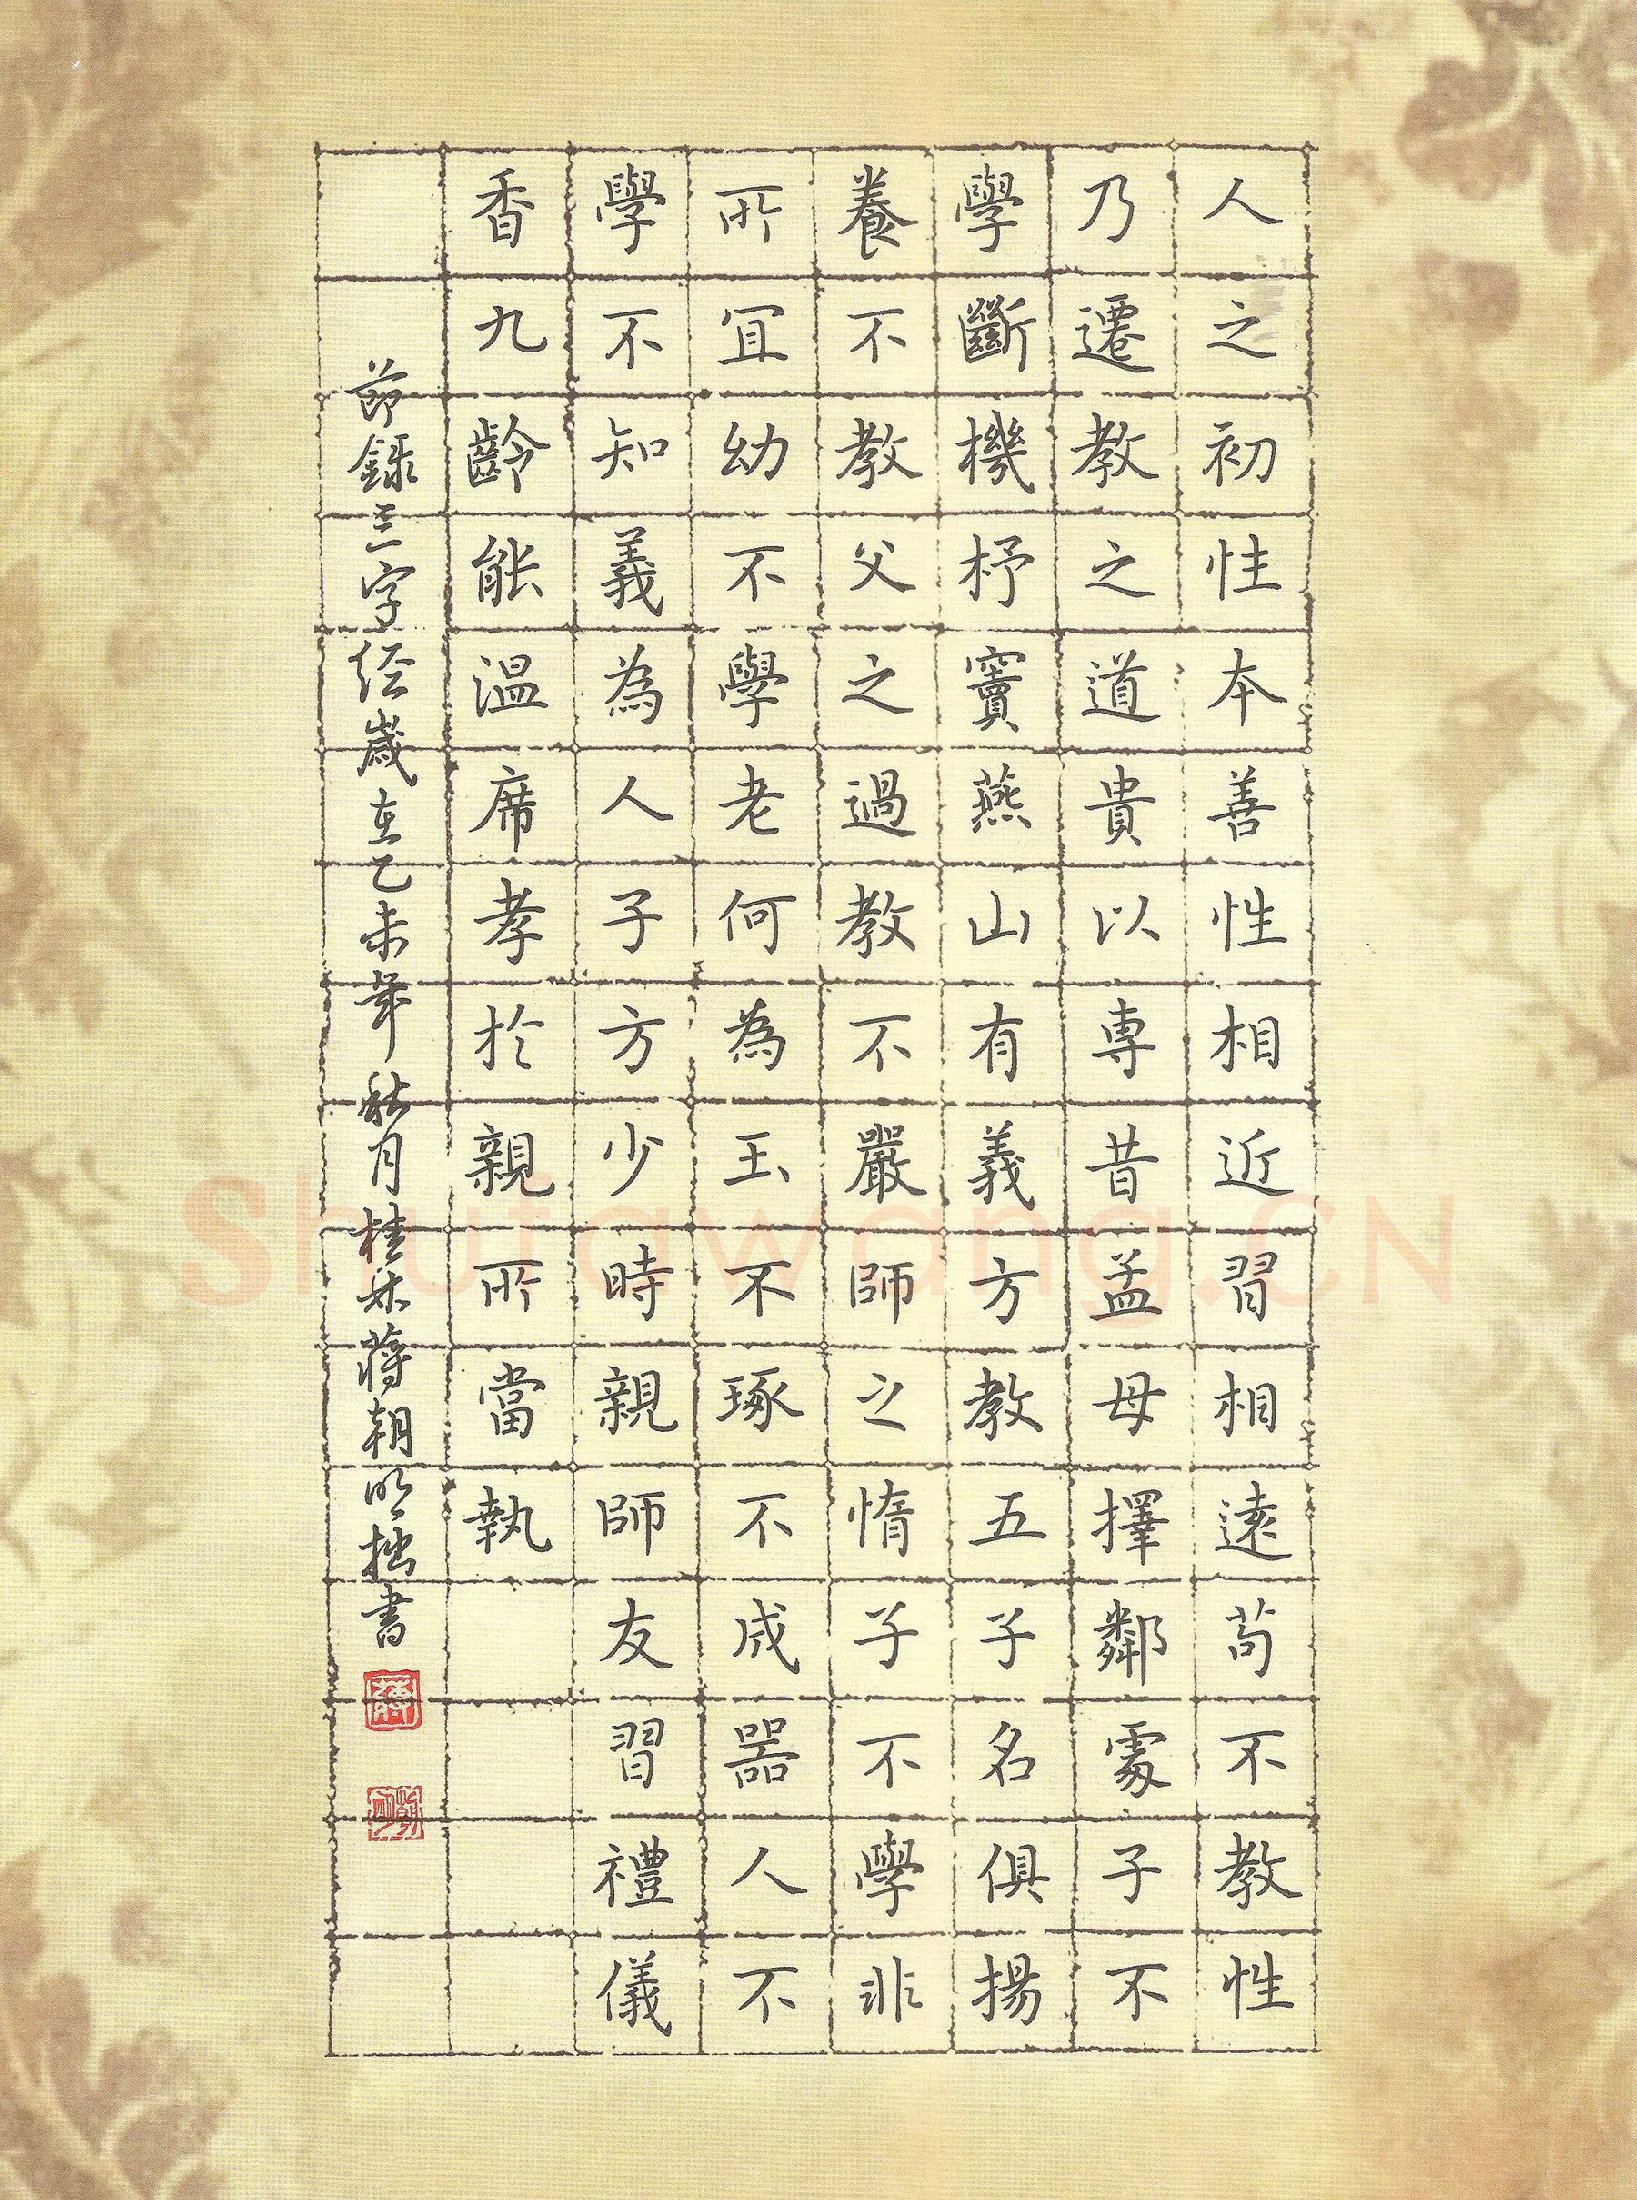 人之初性本善性相近習相遠苟不教性
乃遷教之道貴以專昔孟母擇鄰處子不
學斷機杼竇燕山有義方教五子名俱揚
養不教父之過教不嚴師之惰子不學非
所宜幼不學老何為玉不琢不成器人不
學不知義為人子方少時親師友習禮儀
香九齡能溫席孝於親所當執
節錄三字经歲在乙未年秋月桂林蔣朝明拙書
Shufawang.CN